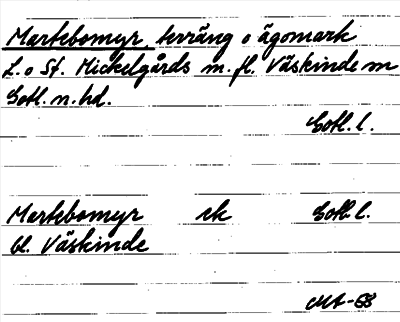 Martebomyr, terräng o ägomark
L. o St. Mickelgårds m. fl. Väskinde sn
Gotl. n. hd.
Gotl. l.
Martebomyr ek Gotl. l.
bl. Väskinde
MA-68